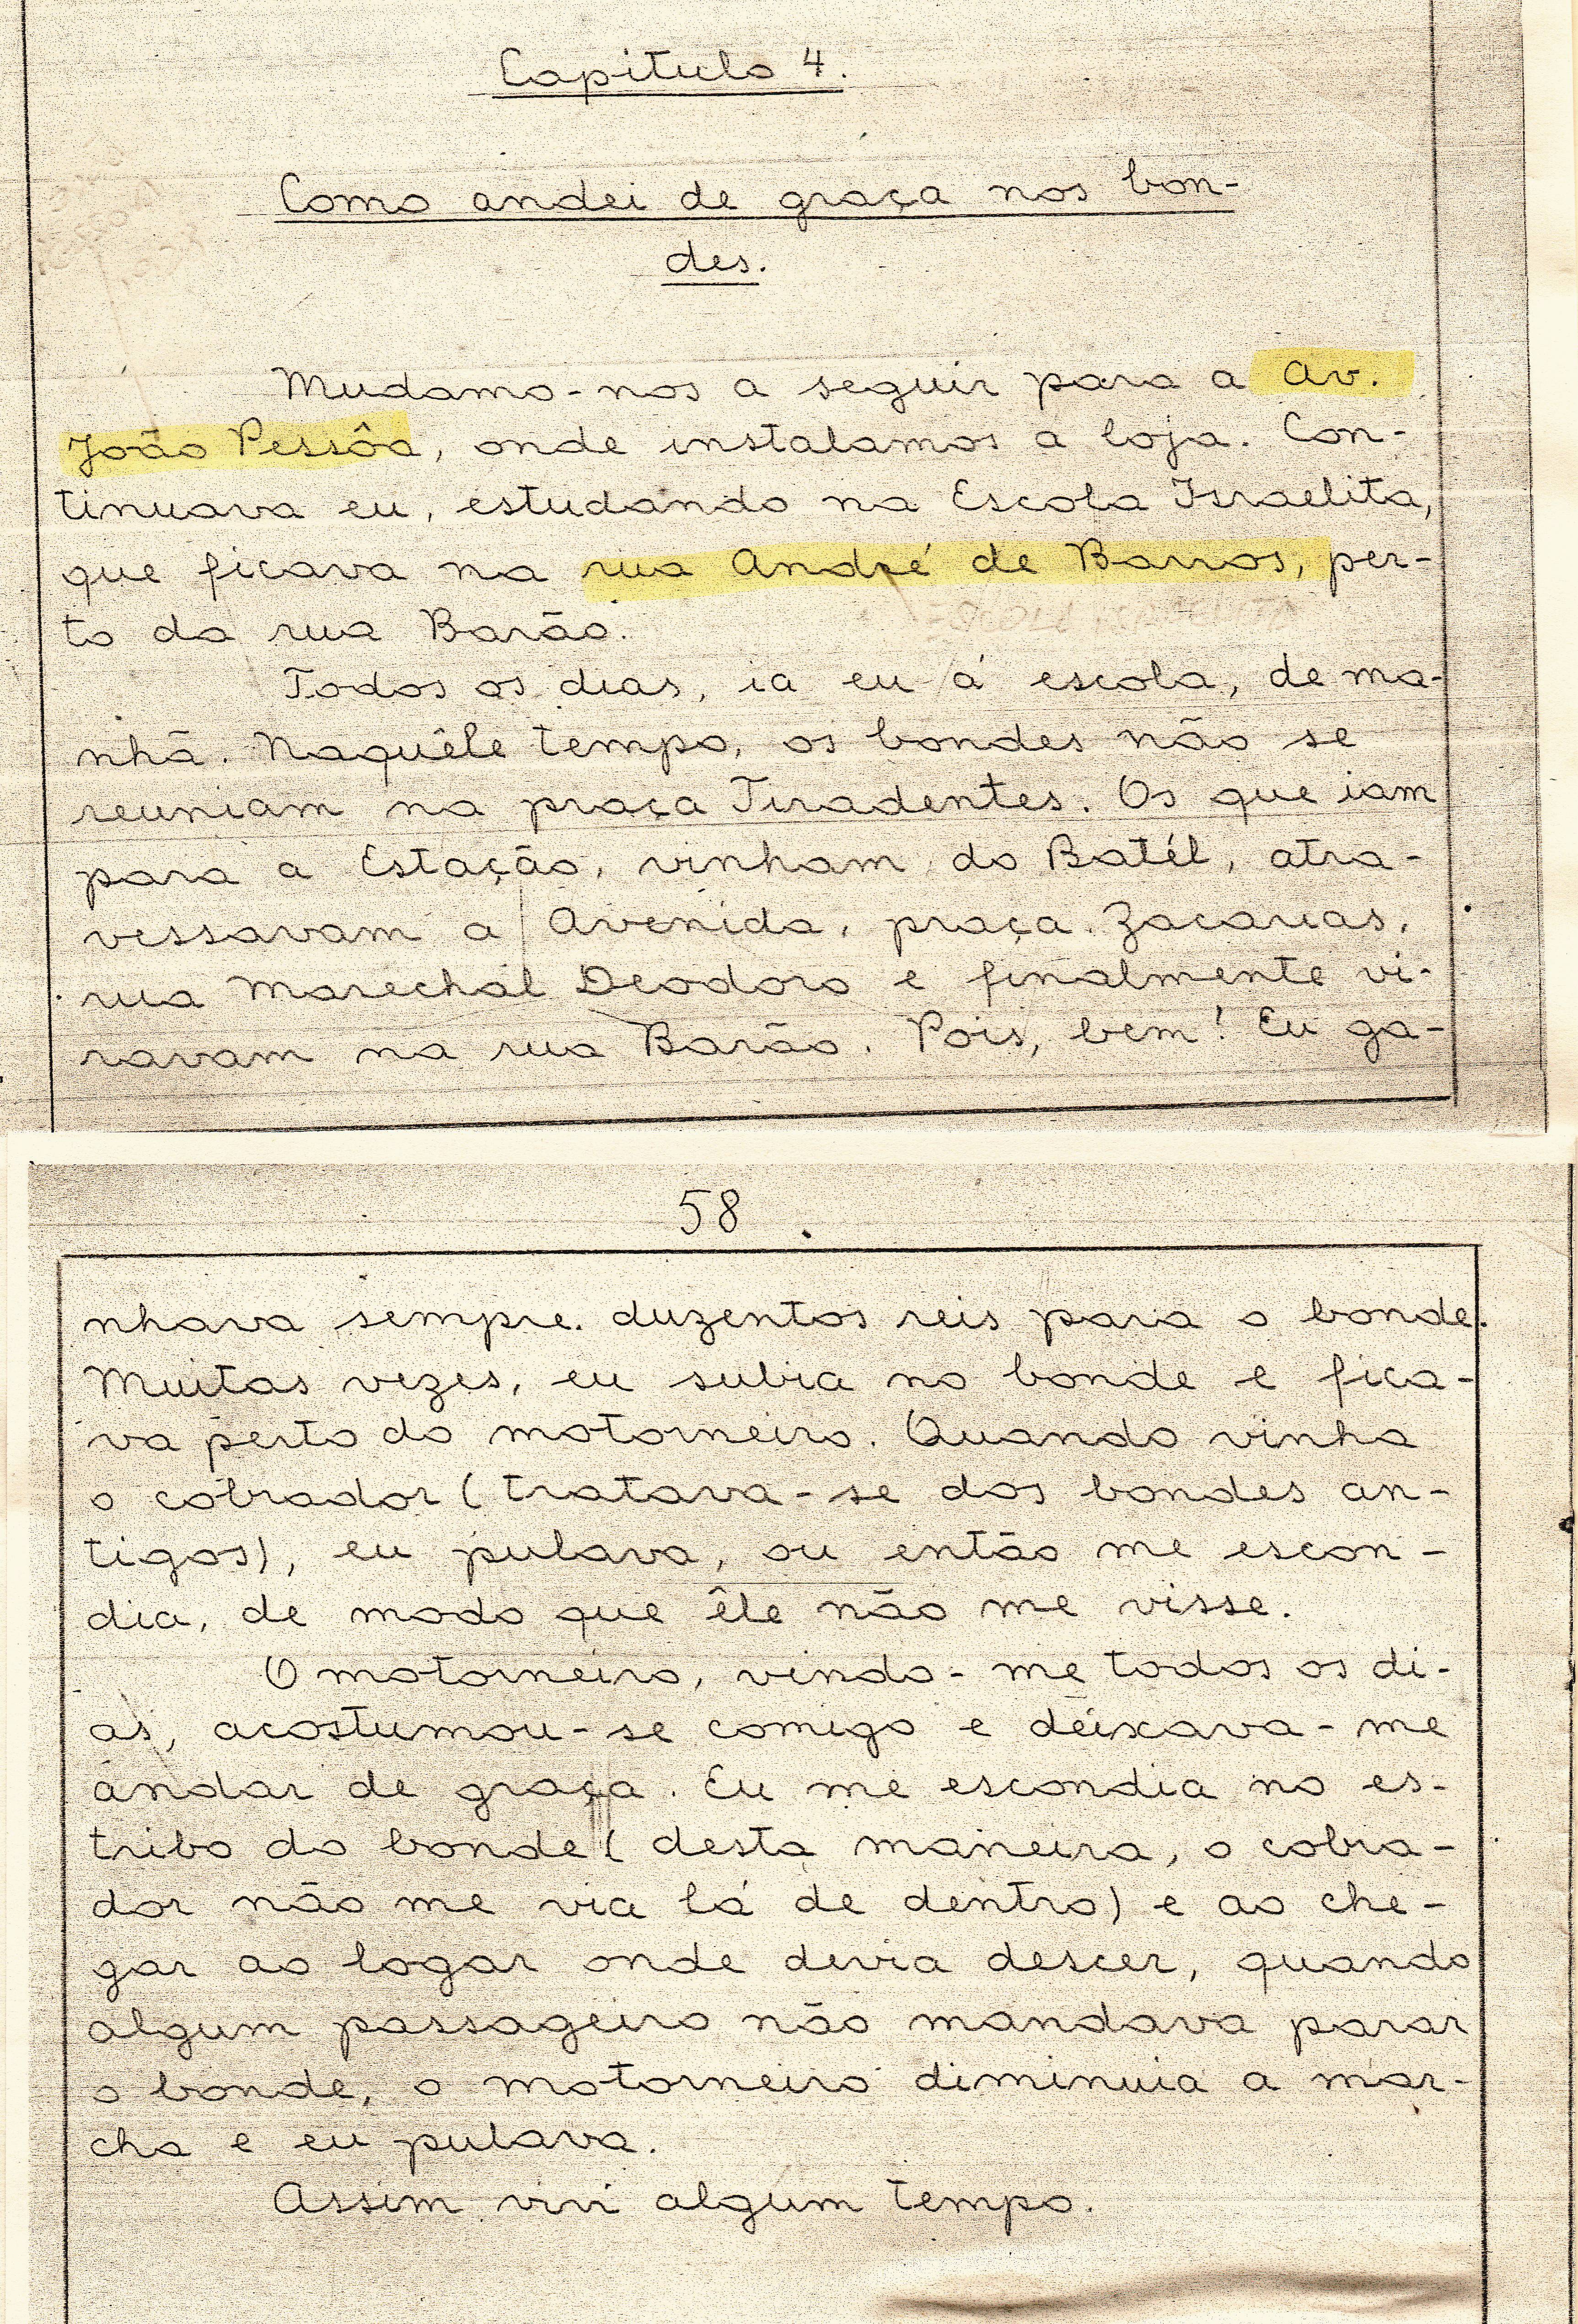 Capitulo 4.
Como andei de graça nos bon-
des.
Mudamo-nos a seguir para a Av.
João Pessôa, onde instalamos a loja. Con-
tinuava eu, estudando na Escola Israelita,
que ficava na rua André de Barros, per-
to da rua Barão.
Todos os dias, ia eu á escola, de ma-
nhã. Naquêle tempo, os bondes não se
reuniam na praça Tiradentes. Os que iam
para a Estação, vinham do Batél, atra-
vessavam a Avenida, praça Zacarias,
rua Marechal Deodoro e finalmente vi-
ravam na rua Barão. Pois, bem! Eu ga-
58
nhava sempre duzentos reis para o bonde.
Muitas vezes, eu subia no bonde e fica-
va perto do motorneiro. Quando vinha
o cobrador (tratava-se dos bondes an-
tigos), eu pulava, ou então me escon-
dia, de modo que êle não me visse.
O motorneiro, vindo-me todos os di-
as, acostumou-se comigo e deixava-me
andar de graça. Eu me escondia no es-
tribo do bonde (desta maneira, o cobra-
dor não me via lá de dentro) e ao che-
gar ao logar onde devia descer, quando
algum passageiro não mandava parar
o bonde, o motorneiro diminuia a mar-
cha e eu pulava.
Assim vivi algum tempo.